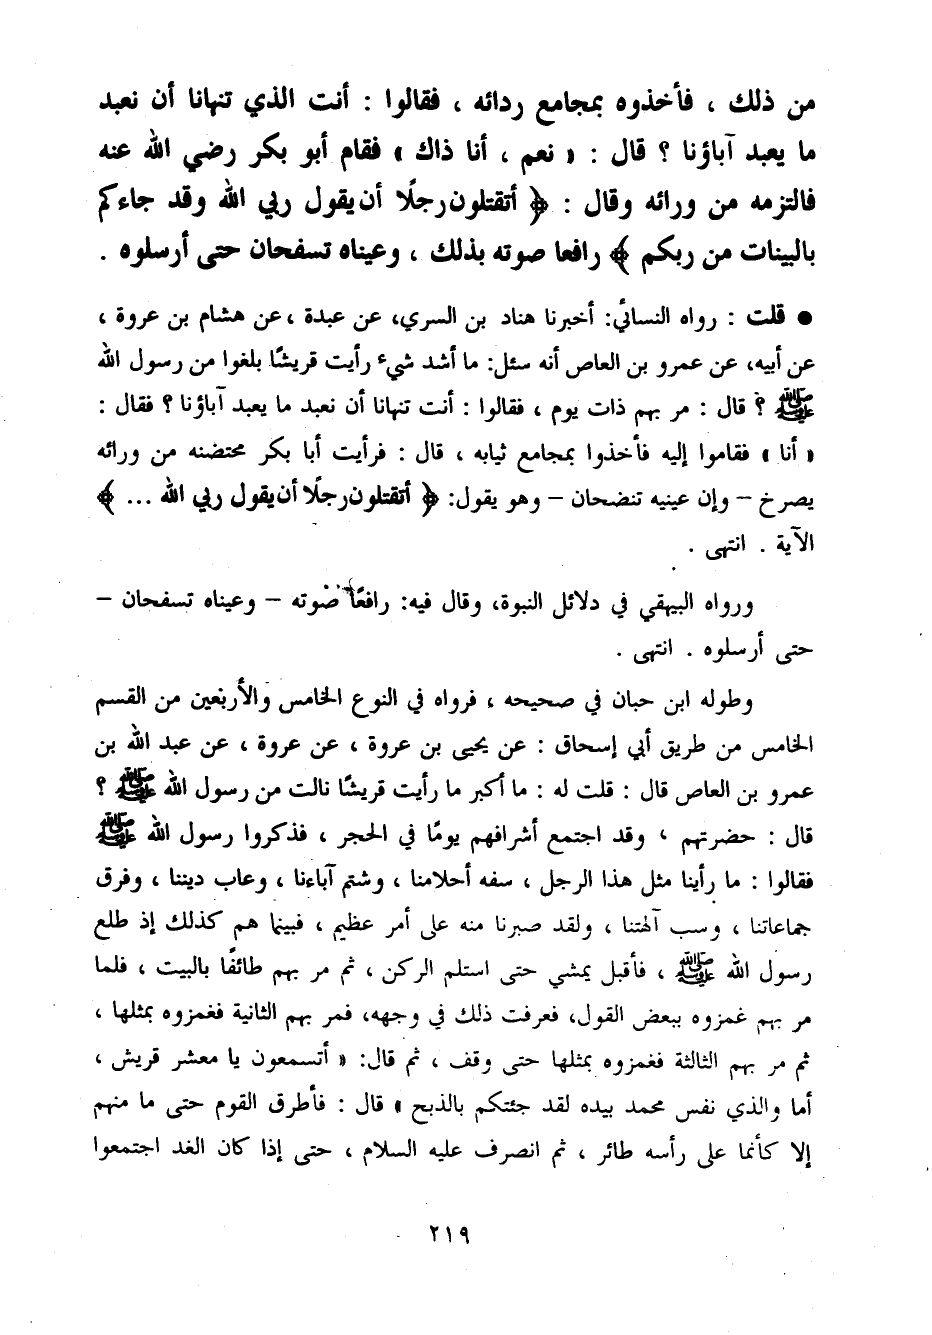 من ذلك ، فأخذوه بمجامع ردائه ، فقالوا : أنت الذي تنهانا أن نعبد
ما يعبد آباؤنا ؟ قال : « نعم ، أنا ذاك » فقام أبو بكر رضي الله عنه
فالتزمه من ورائه وقال : ﴿ أتقتلون رجلًا أن يقول ربي الله وقد جاءكم
بالبينات من ربكم ﴾ رافعا صوته بذلك ، وعيناه تسفحان حتى أرسلوه .
● قلت : رواه النسائي: أخبرنا هناد بن السري، عن عبدة ، عن هشام بن عروة ،
عن أبيه، عن عمرو بن العاص أنه سئل: ما أشد شيء رأيت قريشًا بلغوا من رسول الله
ﷺ ؟ قال : مر بهم ذات يوم ، فقالوا : أنت تنهانا أن نعبد ما يعبد آباؤنا ؟ فقال :
« أنا » فقاموا إليه فأخذوا بمجامع ثيابه ، قال : فرأيت أبا بكر محتضنه من ورائه
يصرخ – وإن عينيه تنضحان – وهو يقول: ﴿ أتقتلون رجلًا أن يقول ربي الله ... ﴾
الآية . انتهى .
ورواه البيهقي في دلائل النبوة، وقال فيه: رافعًا صوته – وعيناه تسفحان –
حتى أرسلوه . انتهى .
وطوله ابن حبان في صحيحه ، فرواه في النوع الخامس والأربعين من القسم
الخامس من طريق أبي إسحاق : عن يحيى بن عروة ، عن عروة ، عن عبد الله بن
عمرو بن العاص قال : قلت له : ما أكبر ما رأيت قريشًا نالت من رسول الله ﷺ ؟
قال : حضرتهم ، وقد اجتمع أشرافهم يومًا في الحجر ، فذكروا رسول الله ﷺ
فقالوا : ما رأينا مثل هذا الرجل ، سفه أحلامنا ، وشتم آباءنا ، وعاب ديننا ، وفرق
جماعاتنا ، وسب آلهتنا ، ولقد صبرنا منه على أمر عظيم ، فبينما هم كذلك إذ طلع
رسول الله ﷺ ، فأقبل يمشي حتى استلم الركن ، ثم مر بهم طائفًا بالبيت ، فلما
مر بهم غمزوه ببعض القول، فعرفت ذلك في وجهه، فمر بهم الثانية فغمزوه بمثلها ،
ثم مر بهم الثالثة فغمزوه بمثلها حتى وقف ، ثم قال: « أتسمعون يا معشر قريش ،
أما والذي نفس محمد بيده لقد جئتكم بالذبح » قال : فأطرق القوم حتى ما منهم
إلا كأنما على رأسه طائر ، ثم انصرف عليه السلام ، حتى إذا كان الغد اجتمعوا
٢١٩